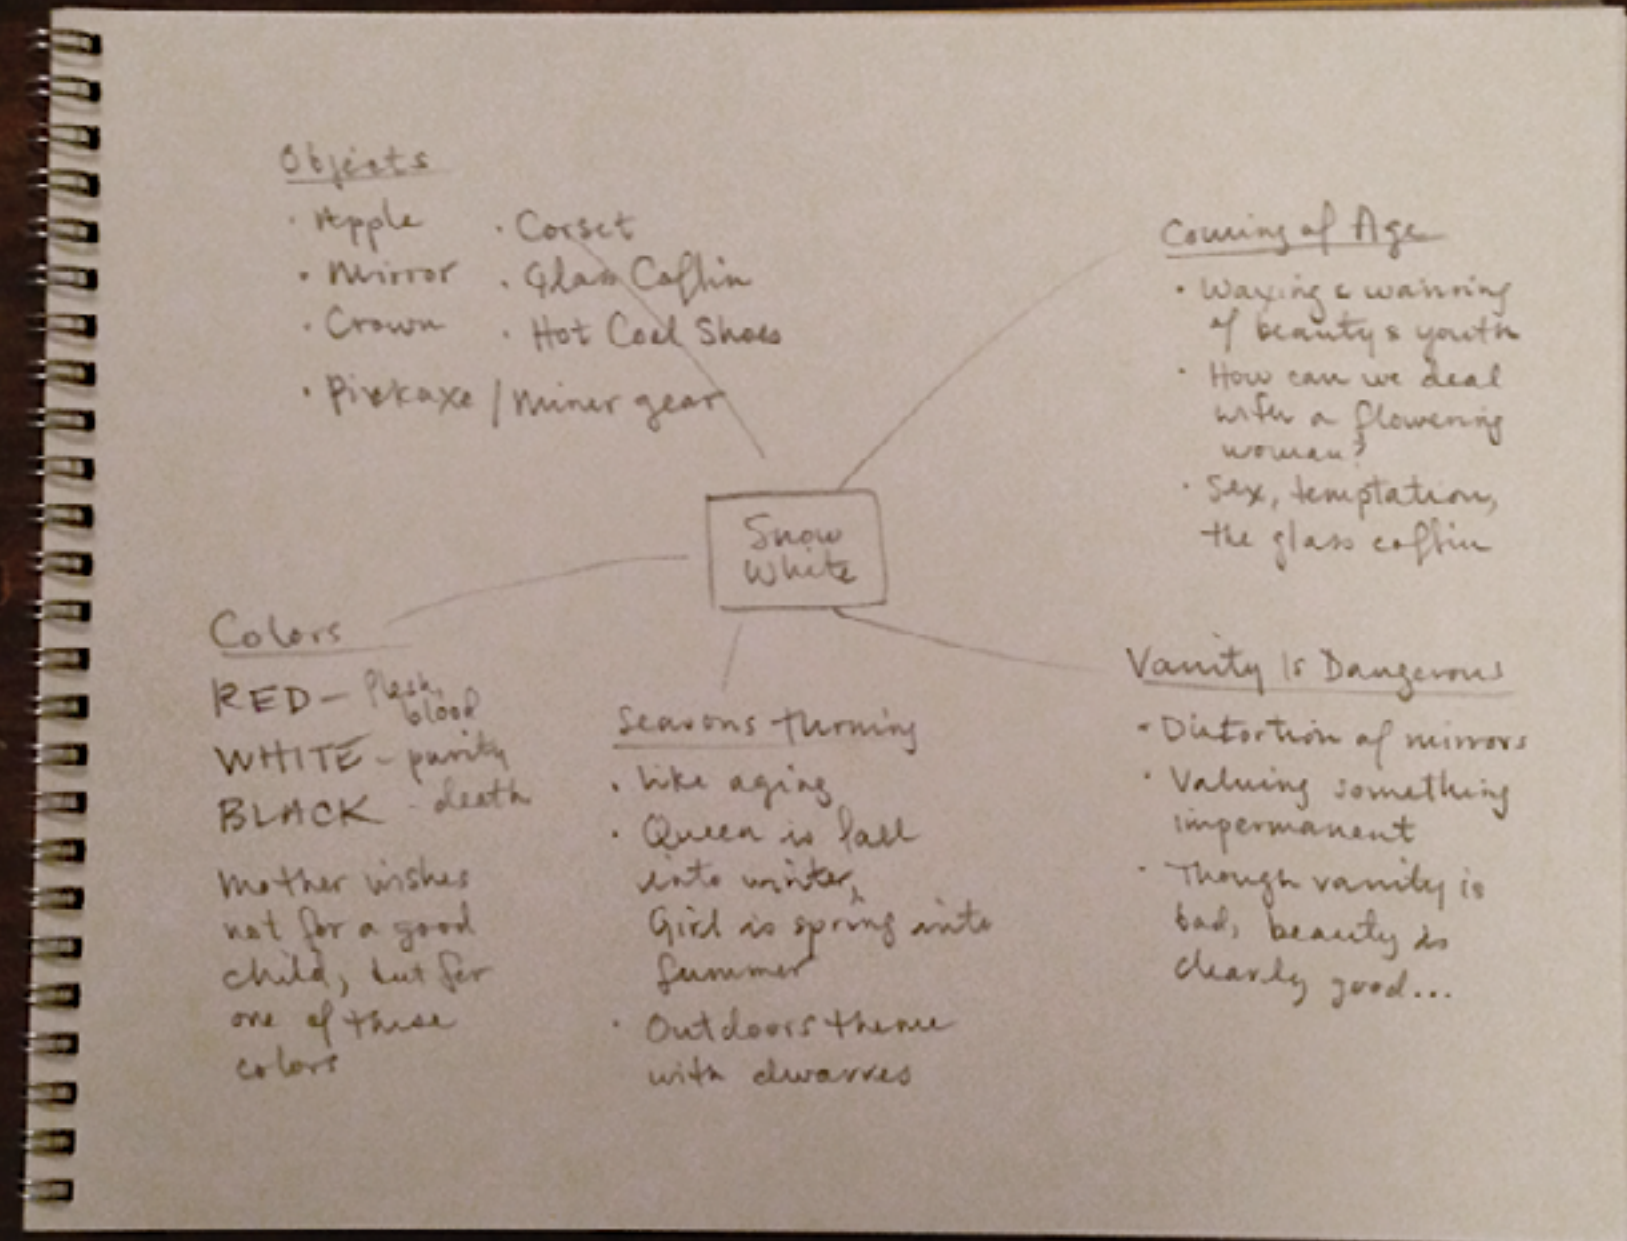 Objects
· Apple
· Mirror
· Crown
· Corset
· Glass Coffin
· Hot Coal Shoes
· Pickaxe / miner gear
Coming of Age
· Waxing & wanning
of beauty & youth
· How can we deal
with a flowering
woman?
· Sex, temptation,
the glass coffin
Snow
White
Colors
RED - flesh,
blood
WHITE - purity
BLACK - death
Mother wishes
not for a good
child, but for
one of these
colors
Seasons turning
· Like aging
· Queen is fall
into winter,
Girl is spring into
Summer
· Outdoors theme
with dwarves
Vanity Is Dangerous
· Distortion of mirrors
· Valuing something
impermanent
· Though vanity is
bad, beauty is
clearly good...